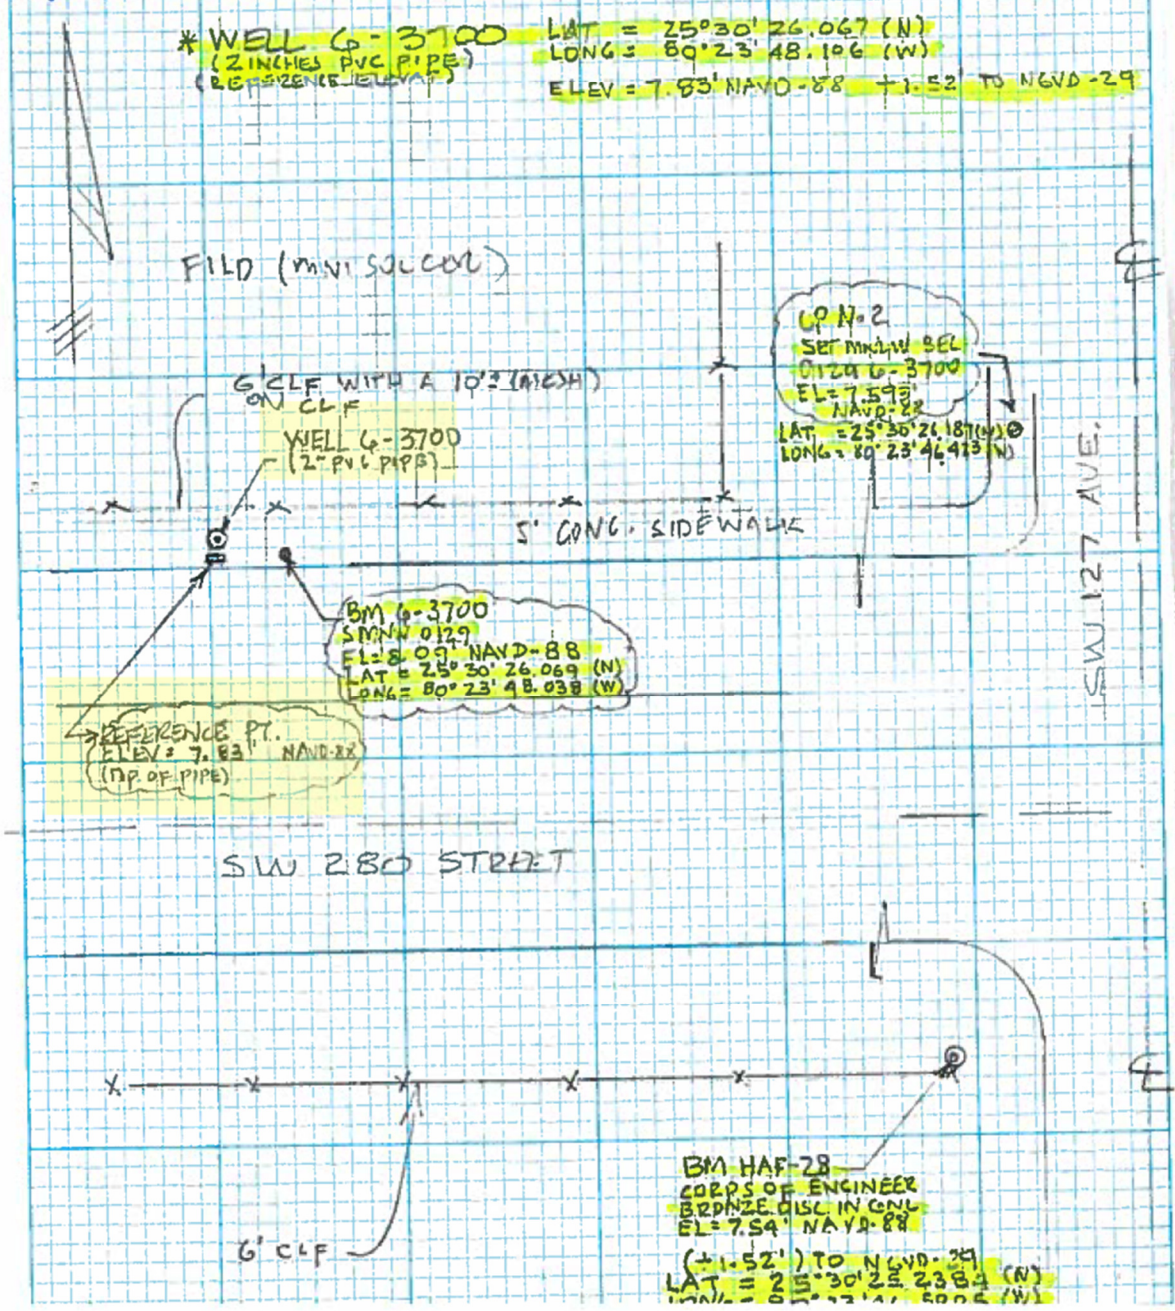 * WELL G-3700
(2 INCHES PVC PIPE)
(REFERENCE ELEVAT)
LAT = 25°30'26.067 (N)
LONG = 80°23'48.106 (W)
ELEV = 7.83' NAVD-88 +1.52' TO NGVD-29
FILD (MINI SOCCER)
6' CLF WITH A 10'± (MESH)
ON CLF
WELL G-3700
(2" PVC PIPE)
CP No. 2
SET
0129 G-3700
EL = 7.593'
NAVD-88
LAT = 25°30'26.187 (N)
LONG = 80°23'46.423
5' CONC. SIDEWALK
SW 127 AVE.
BM G-3700
SMNW 0129
EL = 8.09' NAVD-88
LAT = 25°30'26.069 (N)
LONG = 80°23'48.038 (W)
REFERENCE PT.
ELEV = 7.83' NAVD-88
(TOP OF PIPE)
SW 280 STREET
BM HAF-28
CORPS OF ENGINEER
BRONZE DISC IN CONC
EL = 7.54' NAVD-88
(+1.52') TO NGVD-29
LAT = 25°30'25.2384 (N)
6' CLF